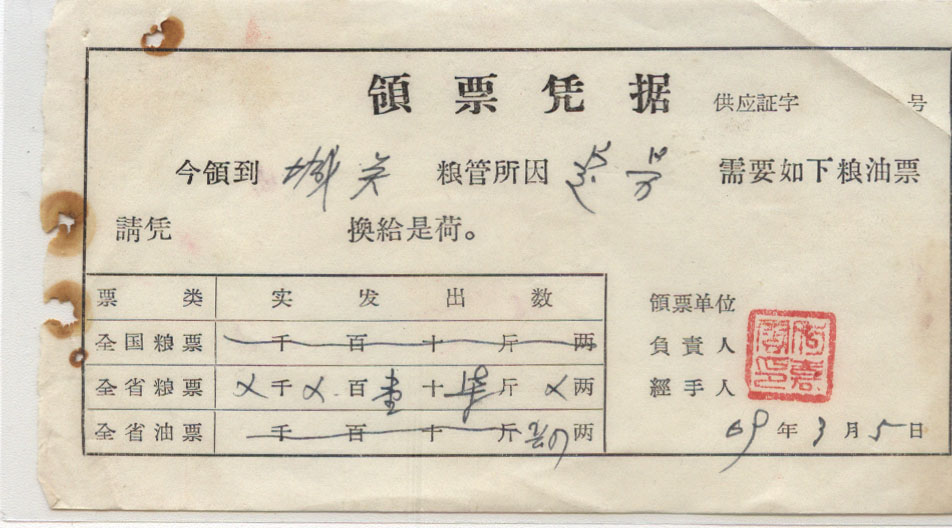 領票凭据 供应証字 号
今領到 城关 粮管所因 需要如下粮油票
請凭 換給是荷。
票类 实发出数
全国粮票 千 百 十 斤 两
全省粮票 ㄨ千ㄨ百壹十 斤ㄨ两
全省油票 千 百 十 斤 两
領票单位
負責人
經手人
69年3月5日